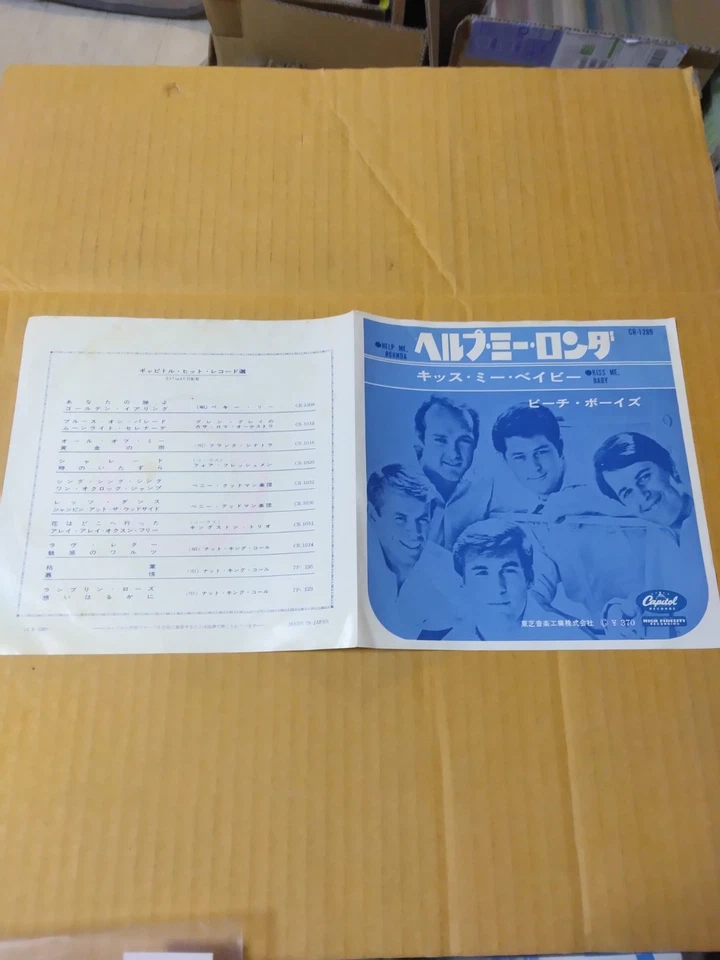 キャピトル・ヒット・レコード選
あなたの瞳よ
ゴールデン・イアリング
(唄) ペギー・リー
ブルース オン パレード
ムーンライト・セレナーデ
グレン・グレイの
カサ・ロマ・オーケストラ
オール オヴ・ミー
黄金の雨
(唄) フランク・シナトラ
シャレード
時のいたずら
フォア・フレッシュメン
シング・シング・シング
ワン・オクロック・ジャンプ
ベニー・グッドマン楽団
レッツ・ダンス
ジャンピン アット ザ ウッドサイド
ベニー・グッドマン楽団
花はどこへ行った
アレイ・アレイ・オクスン・フリー
キングストン・トリオ
CR-1011
ラヴ・レター
魅惑のワルツ
(唄) ナット・キング・コール
CR-1014
枯葉
慕情
(唄) ナット・キング・コール
ランブリン・ローズ
想いはるかに
(唄) ナット・キング・コール
MADE IN JAPAN
CR-1289
●HELP ME, RHONDA
ヘルプ・ミー・ロンダ
キッス・ミー・ベイビー
●KISS ME, BABY
ビーチ・ボーイズ
Capitol
RECORDS
HIGH FIDELITY
RECORDING
東芝音楽工業株式会社 Ⓒ ¥370